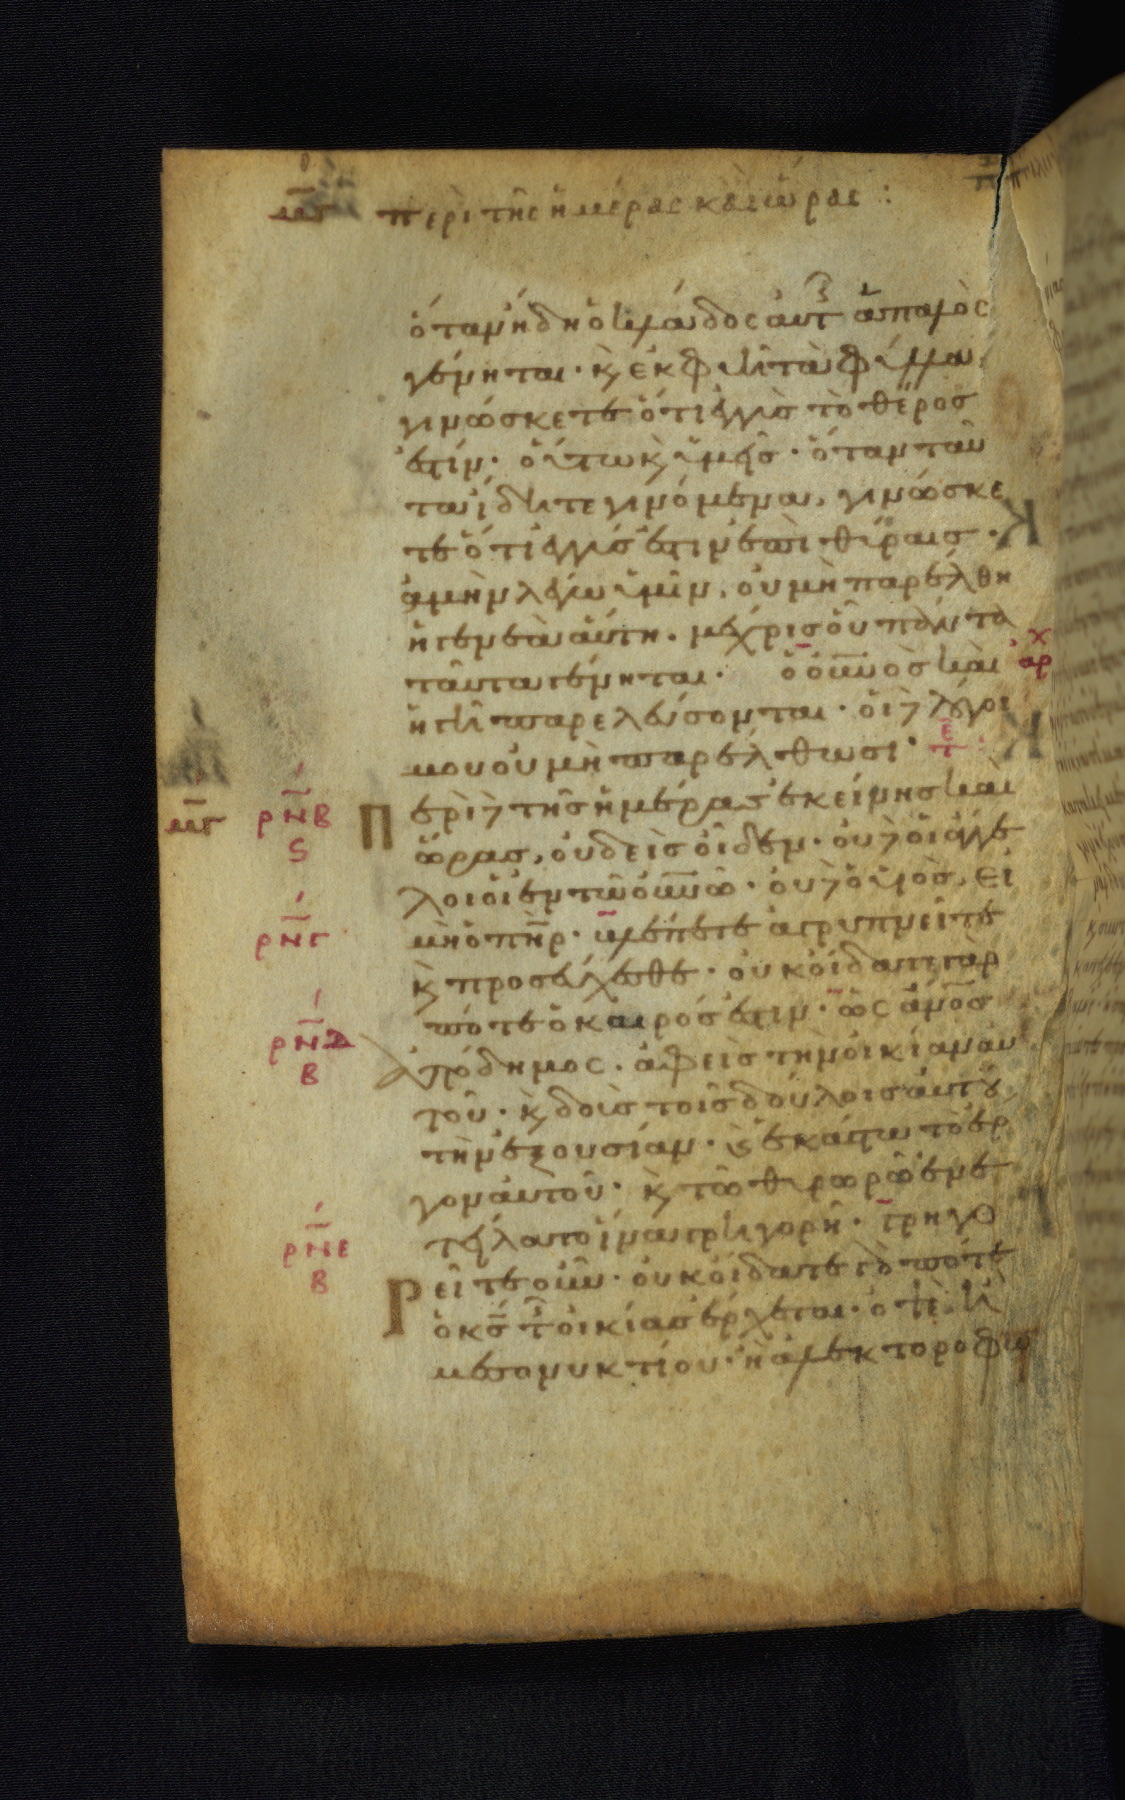 μγ περὶ τῆς ἡμέρας καὶ ὥρας :
ὅταν ἤδη ὁ κλάδος αὐτ ἁπαλὸς
γένηται · κ ἐκφύει τὰ φύλλα
γινώσκετε ὅτι ἐγγὺς τὸ θέρος
ἐστίν · οὕτω κ ὑμεῖς · ὅταν ταῦ
τα ἴδητε γινόμενα, γινώσκε
τε ὅτι ἐγγύς ἐστιν ἐπὶ θύραις ·
ἀμὴν λέγω ὑμῖν, οὐ μὴ παρέλθη
ἡ γενεὰ αὕτη · μέχρις οὗ πάντα
ταῦτα γένηται · ὁ οὐνὸς καὶ αρχ
ἡ γῆ παρελεύσονται · οἱ δὲ λόγοι
μου οὐ μὴ παρέλθωσι · τε :
μγ ρνβ ς Περὶ δὲ τῆς ἡμέρας ἐκείνης καὶ
ὥρας, οὐδεὶς οἶδεν · οὐδὲ οἱ ἄγγε
λοι οἱ ἐν τῶ οὐνῶ · οὐδὲ ὁ υἱὸς, εἰ
ρνγ μὴ ὁ πηρ · βλέπετε ἀγρυπνεῖτε
κ προσεύχεσθε · οὐκ οἴδατε γὰρ
πότε ὁ καιρός ἐστιν · ὡς ἀνος
ρνδ β ἀπόδημος · ἀφεὶς τὴν οἰκίαν αὐ
τοῦ · κ δοὺς τοῖς δούλοις αὐτοῦ
τὴν ἐξουσίαν · κ ἑκάστω τὸ ἔρ
γον αὐτοῦ · κ τῶ θυρωρῶ ἐνε
τείλατο ἵνα γρηγορῆ · γρηγο
ρνε β Ρεῖτε οὖν · οὐκ οἴδατε γὰρ πότε
ὁ κς τ οἰκίας ἔρχεται · ὀψὲ ἢ
μεσονυκτίου · ἢ ἀλεκτοροφω